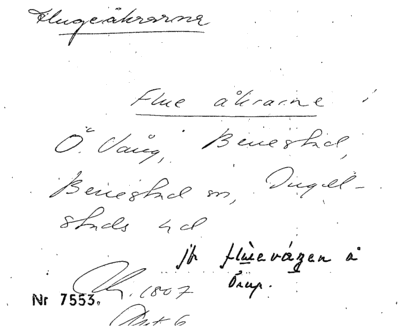 Flugeåkrarna
Flue åkrarne i
Ö. Vång, Benestad,
Benestad sn, Ingel-
stads hd
jfr flùevázen å
Örup.
1807
Nr 7553.
Akt 6